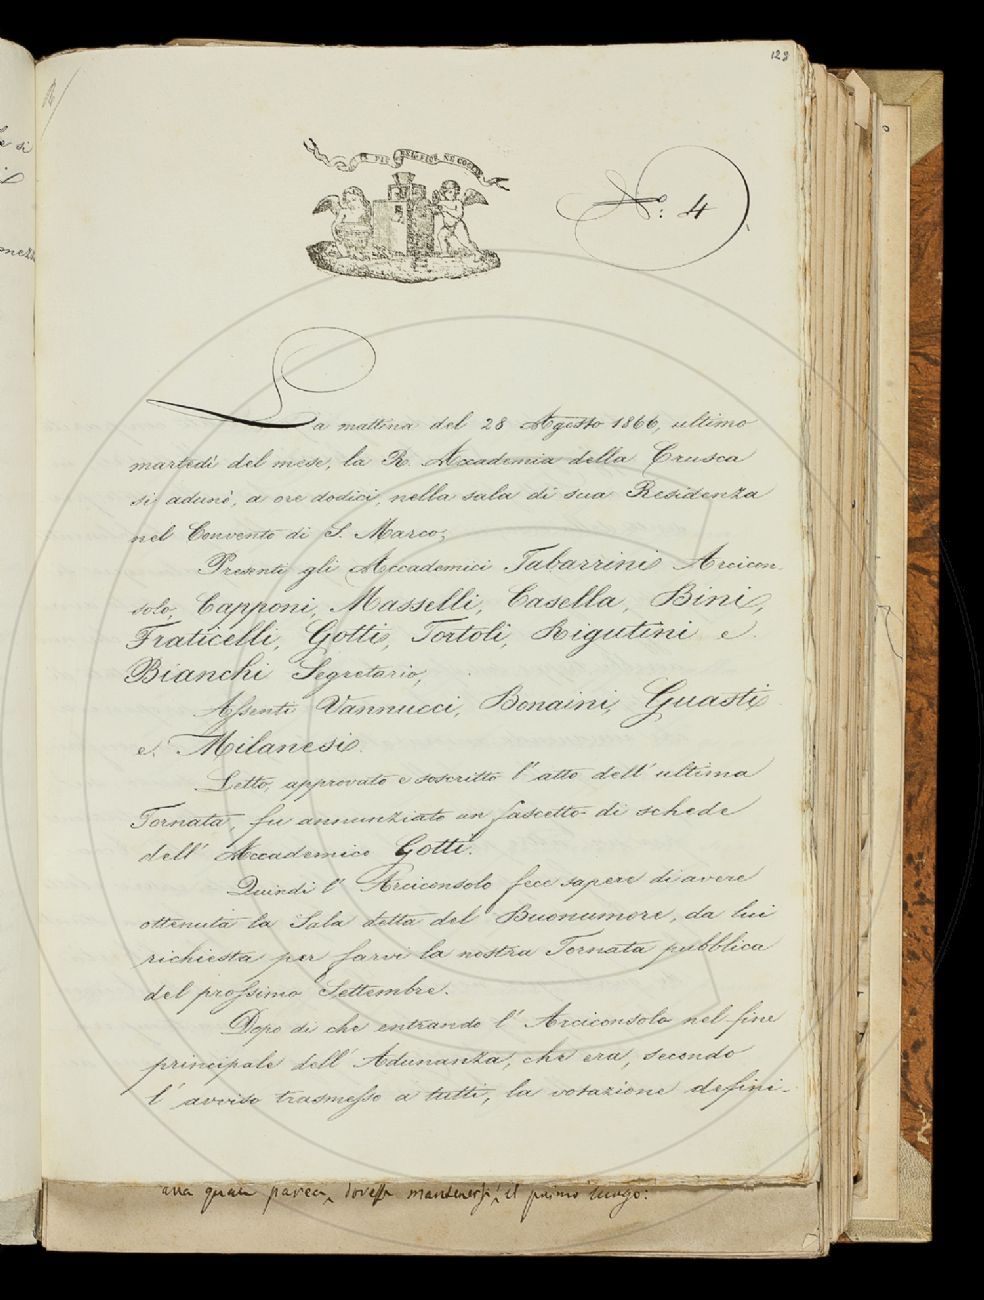 128
IL PIÙ BEL FIOR NE COGLIE
N.: 4
La mattina del 28 Agosto 1866, ultimo
martedì del mese, la R. Accademia della Crusca
si adunò, a ore dodici, nella sala di sua Residenza
nel Convento di S. Marco;
Presenti gli Accademici Tabarrini Arcicon-
solo, Capponi, Masselli, Casella, Bini,
Fraticelli, Gotti, Tortoli, Rigutini e
Bianchi Segretario,
Assenti Vannucci, Bonaini, Guasti
e Milanesi.
Letto, approvato e soscritto l'atto dell'ultima
Tornata, fu annunziato un fascetto di schede
dell'Accademico Gotti.
Quindi l'Arciconsolo fece sapere di avere
ottenuta la Sala detta del Buonumore, da lui
richiesta per farvi la nostra Tornata pubblica
del prossimo Settembre.
Dopo di che entrando l'Arciconsolo nel fine
principale dell'Adunanza, che era, secondo
l'avviso trasmesso a tutti, la votazione defini-
parea, dovesse mantenersi il primo luogo: